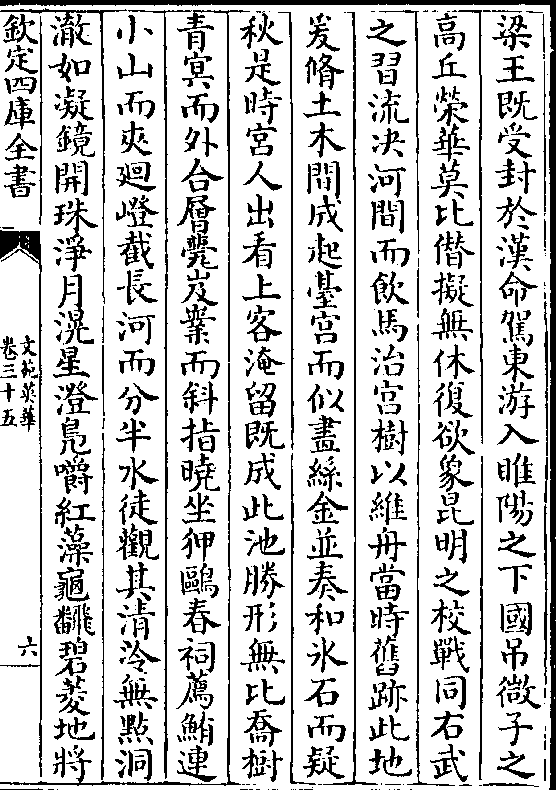 梁王既受封於漢命駕東游入睢陽之下國吊微子之
髙丘榮華莫比僭擬無休復欲象昆明之校戰同右武
之習流决河間而飲馬治宫樹以維舟當時舊跡此地
爰脩土木間成起臺宫而似畫絲金並奏和氷石而疑
秋是時宫人出看上客淹留既成此池勝形無比喬樹
青㝠而外合層甍岌嶪而斜指曉坐狎鷗春祠薦鮪連
小山而夾廻嶝截長河而分半水徒觀其清泠無㸃洞
澈如凝鏡開珠淨月滉星澄鳬嚼紅藻龜翻碧菱地將
欽定四庫全書
文苑英華
卷三十五
六